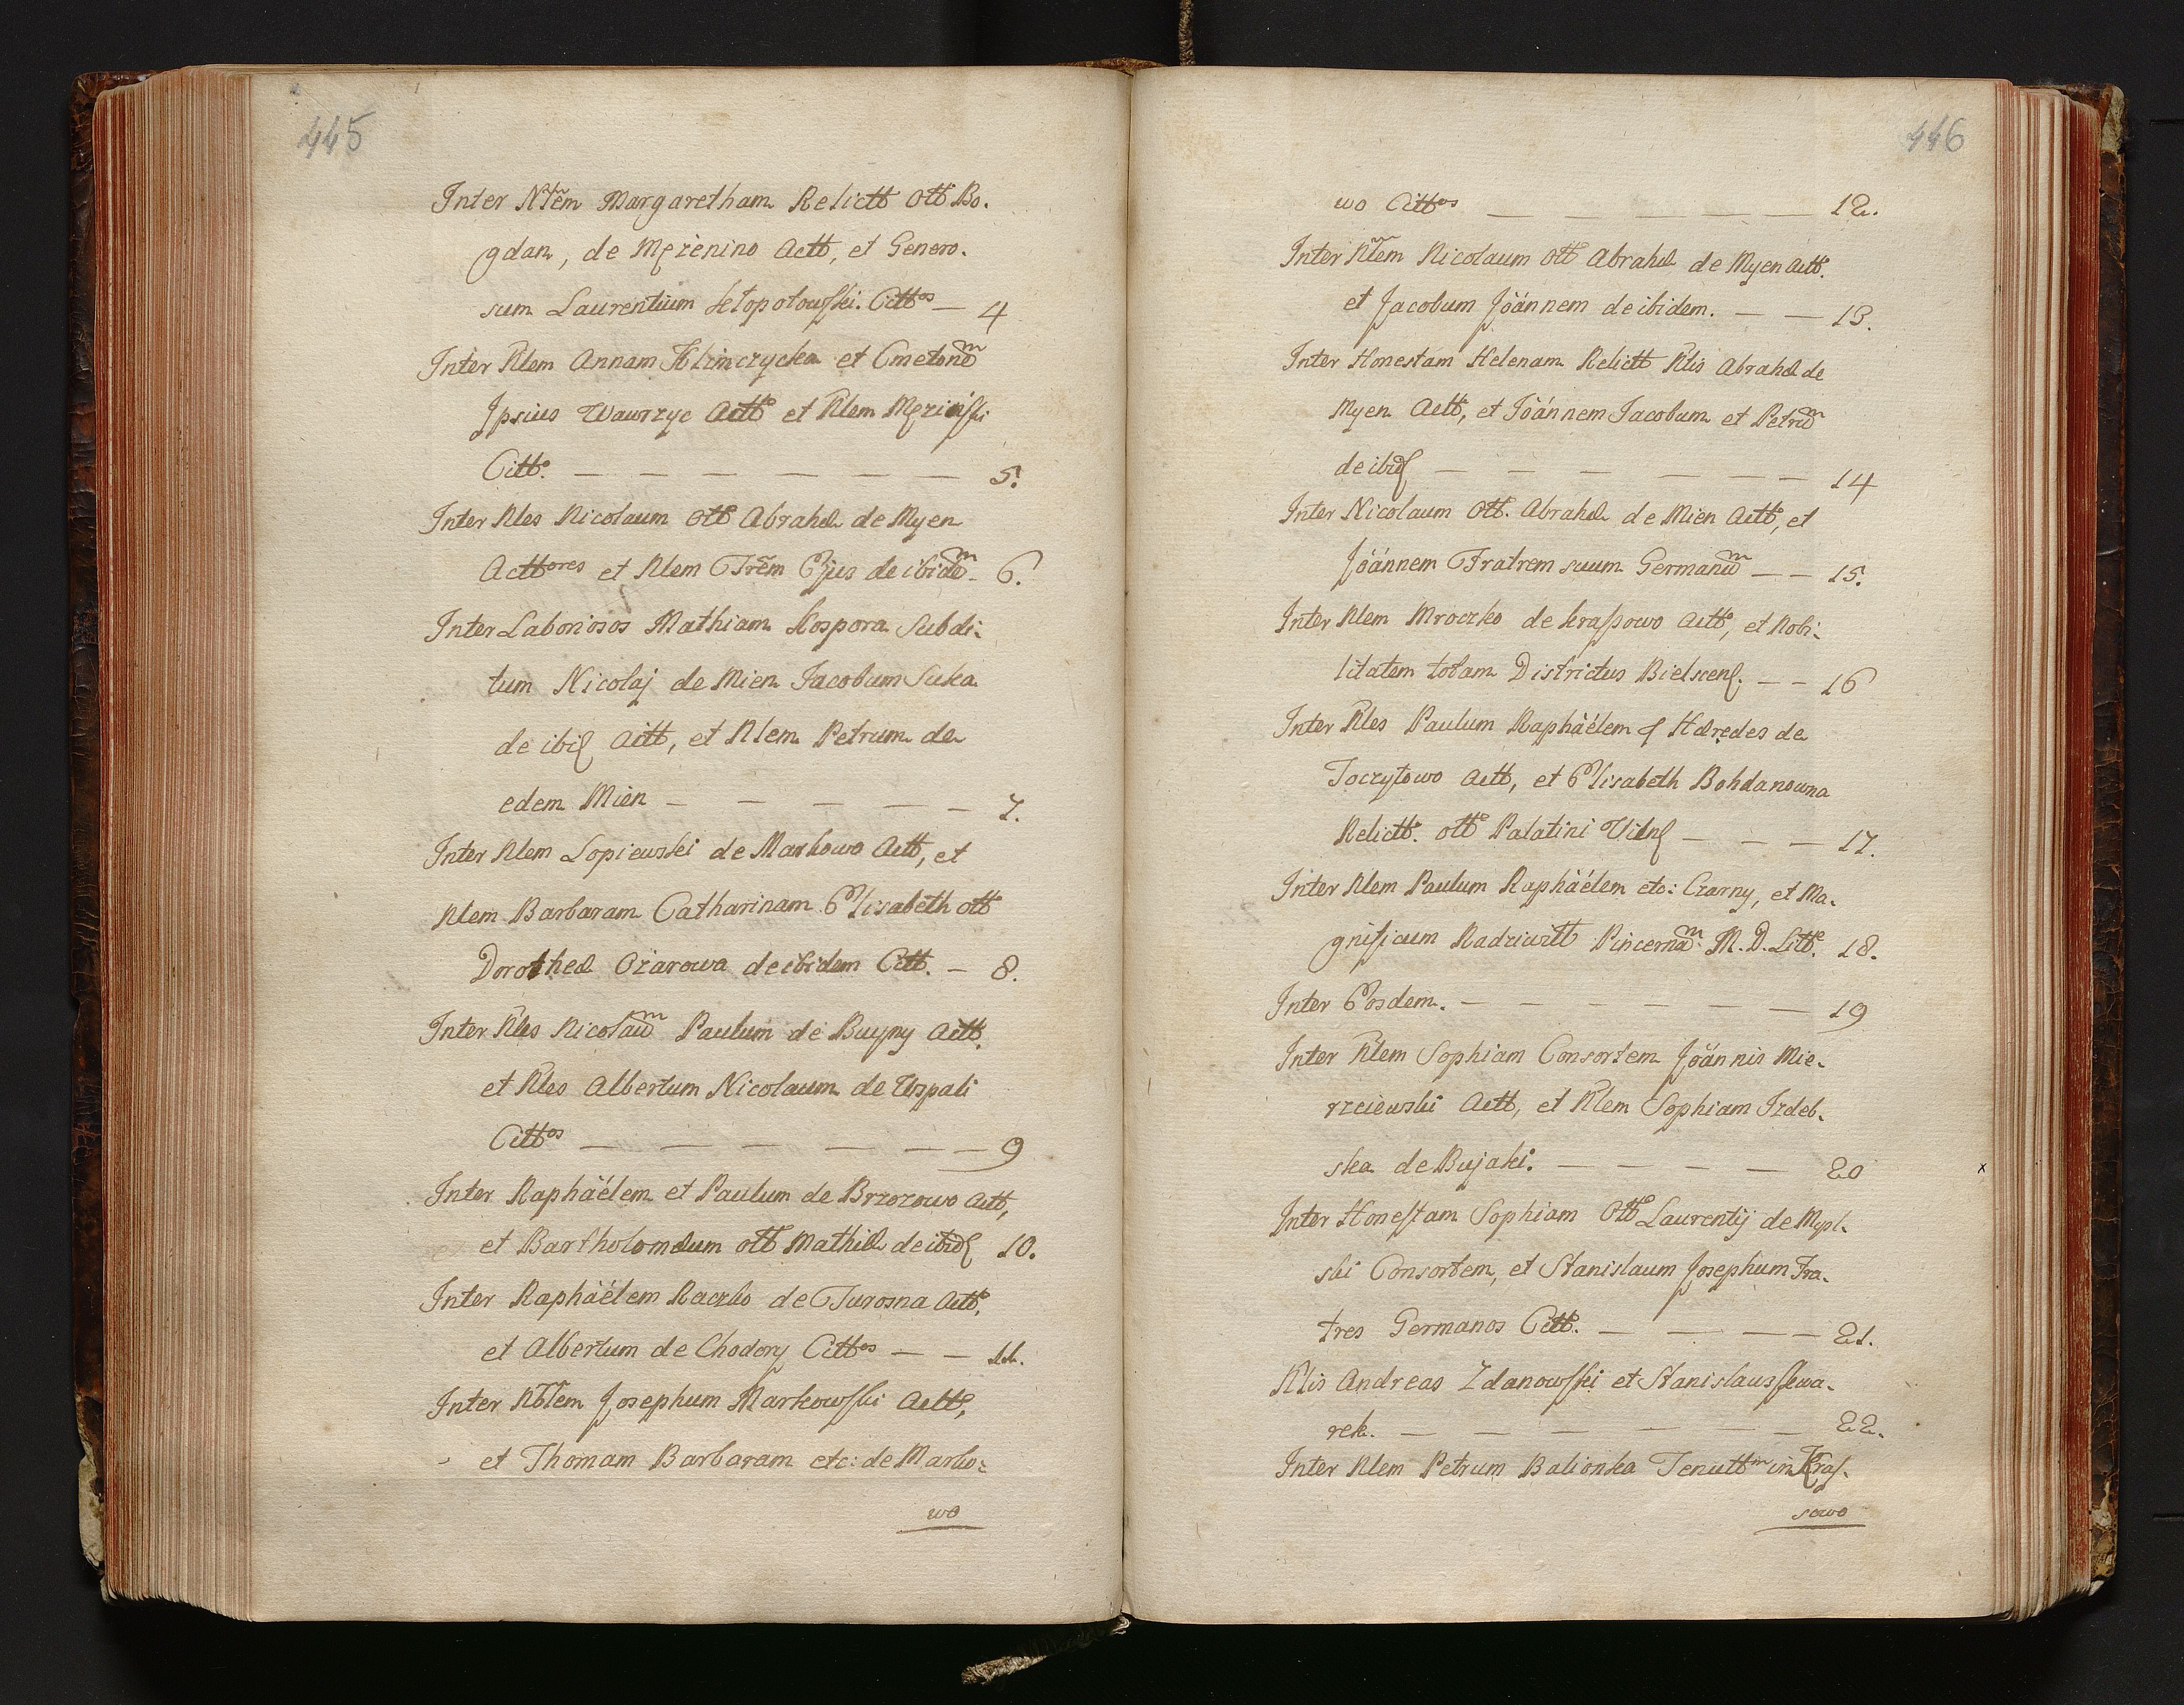 445
Inter Nblem Margaretham Relictt Ott Bo-
gdan, de Mężenino Actt, et Genero-
sum Laurentium Kłopotowski. Citt^os — 4
Inter Nlem Annam Klimczycka et Cmetonem
Ipsius Wawrzyc Actt et Nlem Mężiński
Citt. — — — — — — 5.
Inter Nles Nicolaum Ott Abrahæ de Myen
Actt^ores et Nlem Frem Ejus de ibidem — 6.
Inter Laboriosos Mathiam Kospora Subdi-
tum Nicolaj de Mien Jacobum Suka
de ibid Actt, et Nlem Petrum de
edem Mien — — — — — 7.
Inter Nlem Łopiewski de Markowo Actt, et
Nlem Barbaram Catharinam Elisabeth ott
Dorotheæ Ożarowa de ibidem Citt. — 8.
Inter Nles Nicolaum Paulum de Buyny Actt.
et Nles Albertum Nicolaum de Uspali
Citt^os — — — — — — 9
Inter Raphäélem et Paulum de Brzozowo Actt,
et Bartholomæum ott Mathiæ de ibid 10.
Inter Raphäélem Raczko de Turosna Actt.
et Albertum de Chodory Citt^os — — 11.
Inter Nblem Josephum Markowski Actt,
et Thomam Barbaram etc: de Marko-
wo
446
wo Citt^os — — — — — 12.
Inter Nlem Nicolaum Ott Abrahæ de Myen Actt.
et Jacobum Jöánnem de ibidem. — — 13.
Inter Honestam Helenam Relictt Nlis Abrahæ de
Myen Actt, et Jöánnem Jacobum et Petrum
de ibid — — — — — — 14
Inter Nicolaum Ott. Abrahæ de Mien Actt, et
Jöánnem Fratrem suum Germanum — — 15.
Inter Nlem Mroczko de Krassowo Actt, et Nobi-
litatem totam Districtus Bielscen. — — 16
Inter Nles Paulum Raphäélem & Hæredes de
Toczyłowo Actt, et Elisabeth Bohdanowna
Relictt. ott Palatini Viln — — — 17.
Inter Nlem Paulum Raphäélem etc: Czarny, et Ma-
gnificum Radziwiłł Pincernam M. D. Litt. 18.
Inter Eosdem. — — — — — — 19
Inter Nlem Sophiam Consortem Jöánnis Mie-
rzeiewski Actt, et Nlem Sophiam Izdeb-
ska de Bujaki. — — — — 20
Inter Honestam Sophiam Ott Laurentij de Mysl-
ski Consortem, et Stanislaum Josephum Fra-
tres Germanos Citt. — — — — 21.
Nlis Andreas Zdanowski et Stanislaus Skwa-
rek. — — — — — — 22.
Inter Nlem Petrum Balionka Tenutt^m in Kras-
sowo